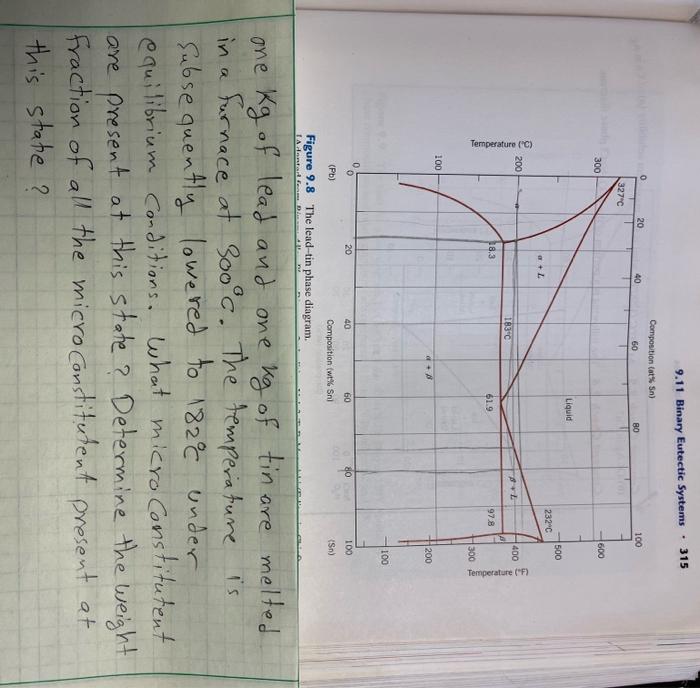 9.11 Binary Eutectic Systems • 315
Composition (at% Sn)
0 20 40 60 80 100
327°C
300
200
100
0
Temperature (°C)
600
500
400
300
200
100
Temperature (°F)
Liquid
232°C
α + L
183°C
β + L
β
18.3
61.9
97.8
α + β
0 20 40 60 80 100
(Pb)
Composition (wt% Sn)
(Sn)
Figure 9.8 The lead–tin phase diagram.
one Kg of lead and one kg of tin are melted
in a furnace at 300°C. The temperature is
subsequently lowered to 182°C under
equilibrium conditions. What microconstitutent
are present at this state? Determine the weight
fraction of all the microconstitutent present at
this state?